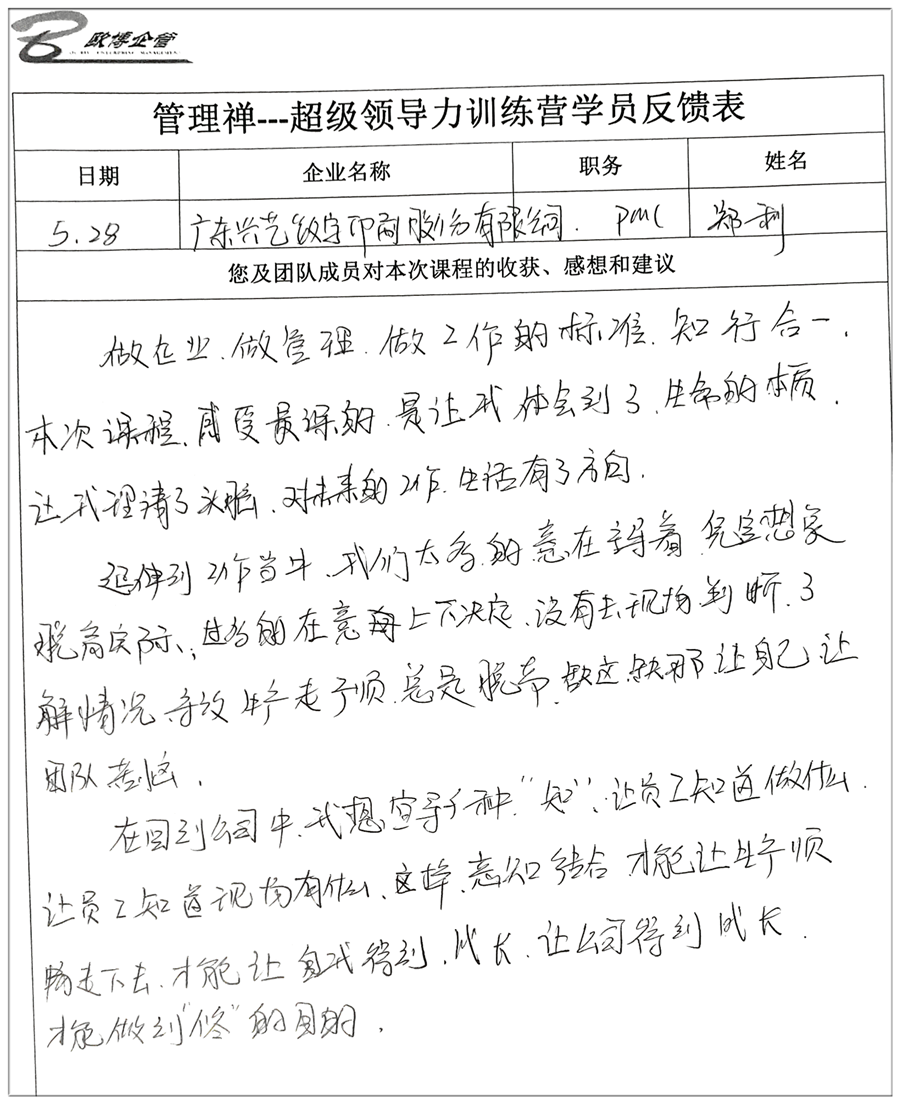 欧博企管
管理禅---超级领导力训练营学员反馈表
日期 企业名称 职务 姓名
5.28 广东兴艺数字印刷股份有限公司. PMC 郑利
您及团队成员对本次课程的收获、感想和建议
做企业.做管理.做工作的标准.知行合一.
本次课程、感受最深的.是让我体会到了.生命的本质.
让我理请了头脑.对未来的工作.生活有了方向.
延伸到工作当中、我们太多的意在 着 凭空想象
脱离实际、过多的在意 上下决定.没有去现场判断.了
解情况、导致生产走不顺.总是脱节.缺这.缺那让自己让
团队
在回到公司中.我想宣导 种“知”、让员工知道做什么.
让员工知道现场有什么.这样.意知结合 才能让生产顺
畅走下去.才能让自我得到.成长.让公司得到成长.
才能做到“修”的目的.